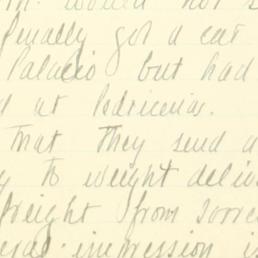 would not
finally got a car
Palacio but had
d at Pedricenas.
that they send a
to weight deliv
freight from Torre
eral impression is